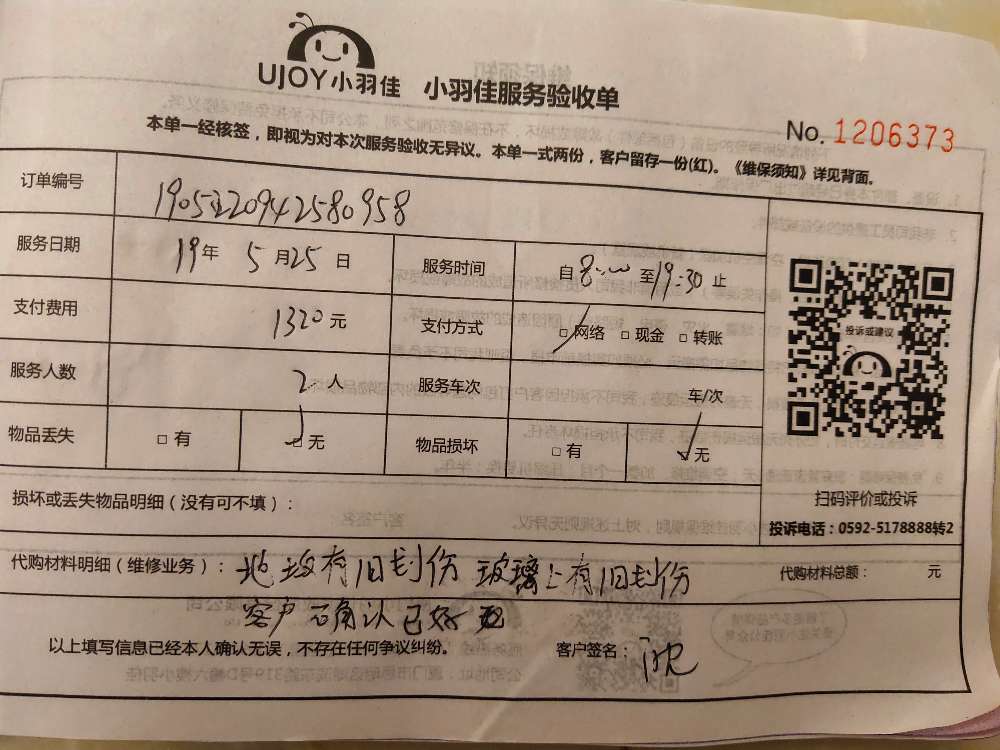 UJOY小羽佳 小羽佳服务验收单
No. 1206373
本单一经核签，即视为对本次服务验收无异议。本单一式两份，客户留存一份(红)。《维保须知》详见背面。
订单编号
服务日期 19年 5月25日 服务时间 自8:00至19:30止
支付费用 1320元 支付方式 □网络 □现金 □转账
服务人数 2人 服务车次 车/次
物品丢失 □有 □无 物品损坏 □有 □无
投诉或建议
扫码评价或投诉
投诉电话：0592-5178888转2
损坏或丢失物品明细（没有可不填）：
代购材料明细（维修业务）： 地 有旧划份 玻璃上有旧划份 代购材料总额： 元
客户 确认已好
以上填写信息已经本人确认无误，不存在任何争议纠纷。 客户签名：